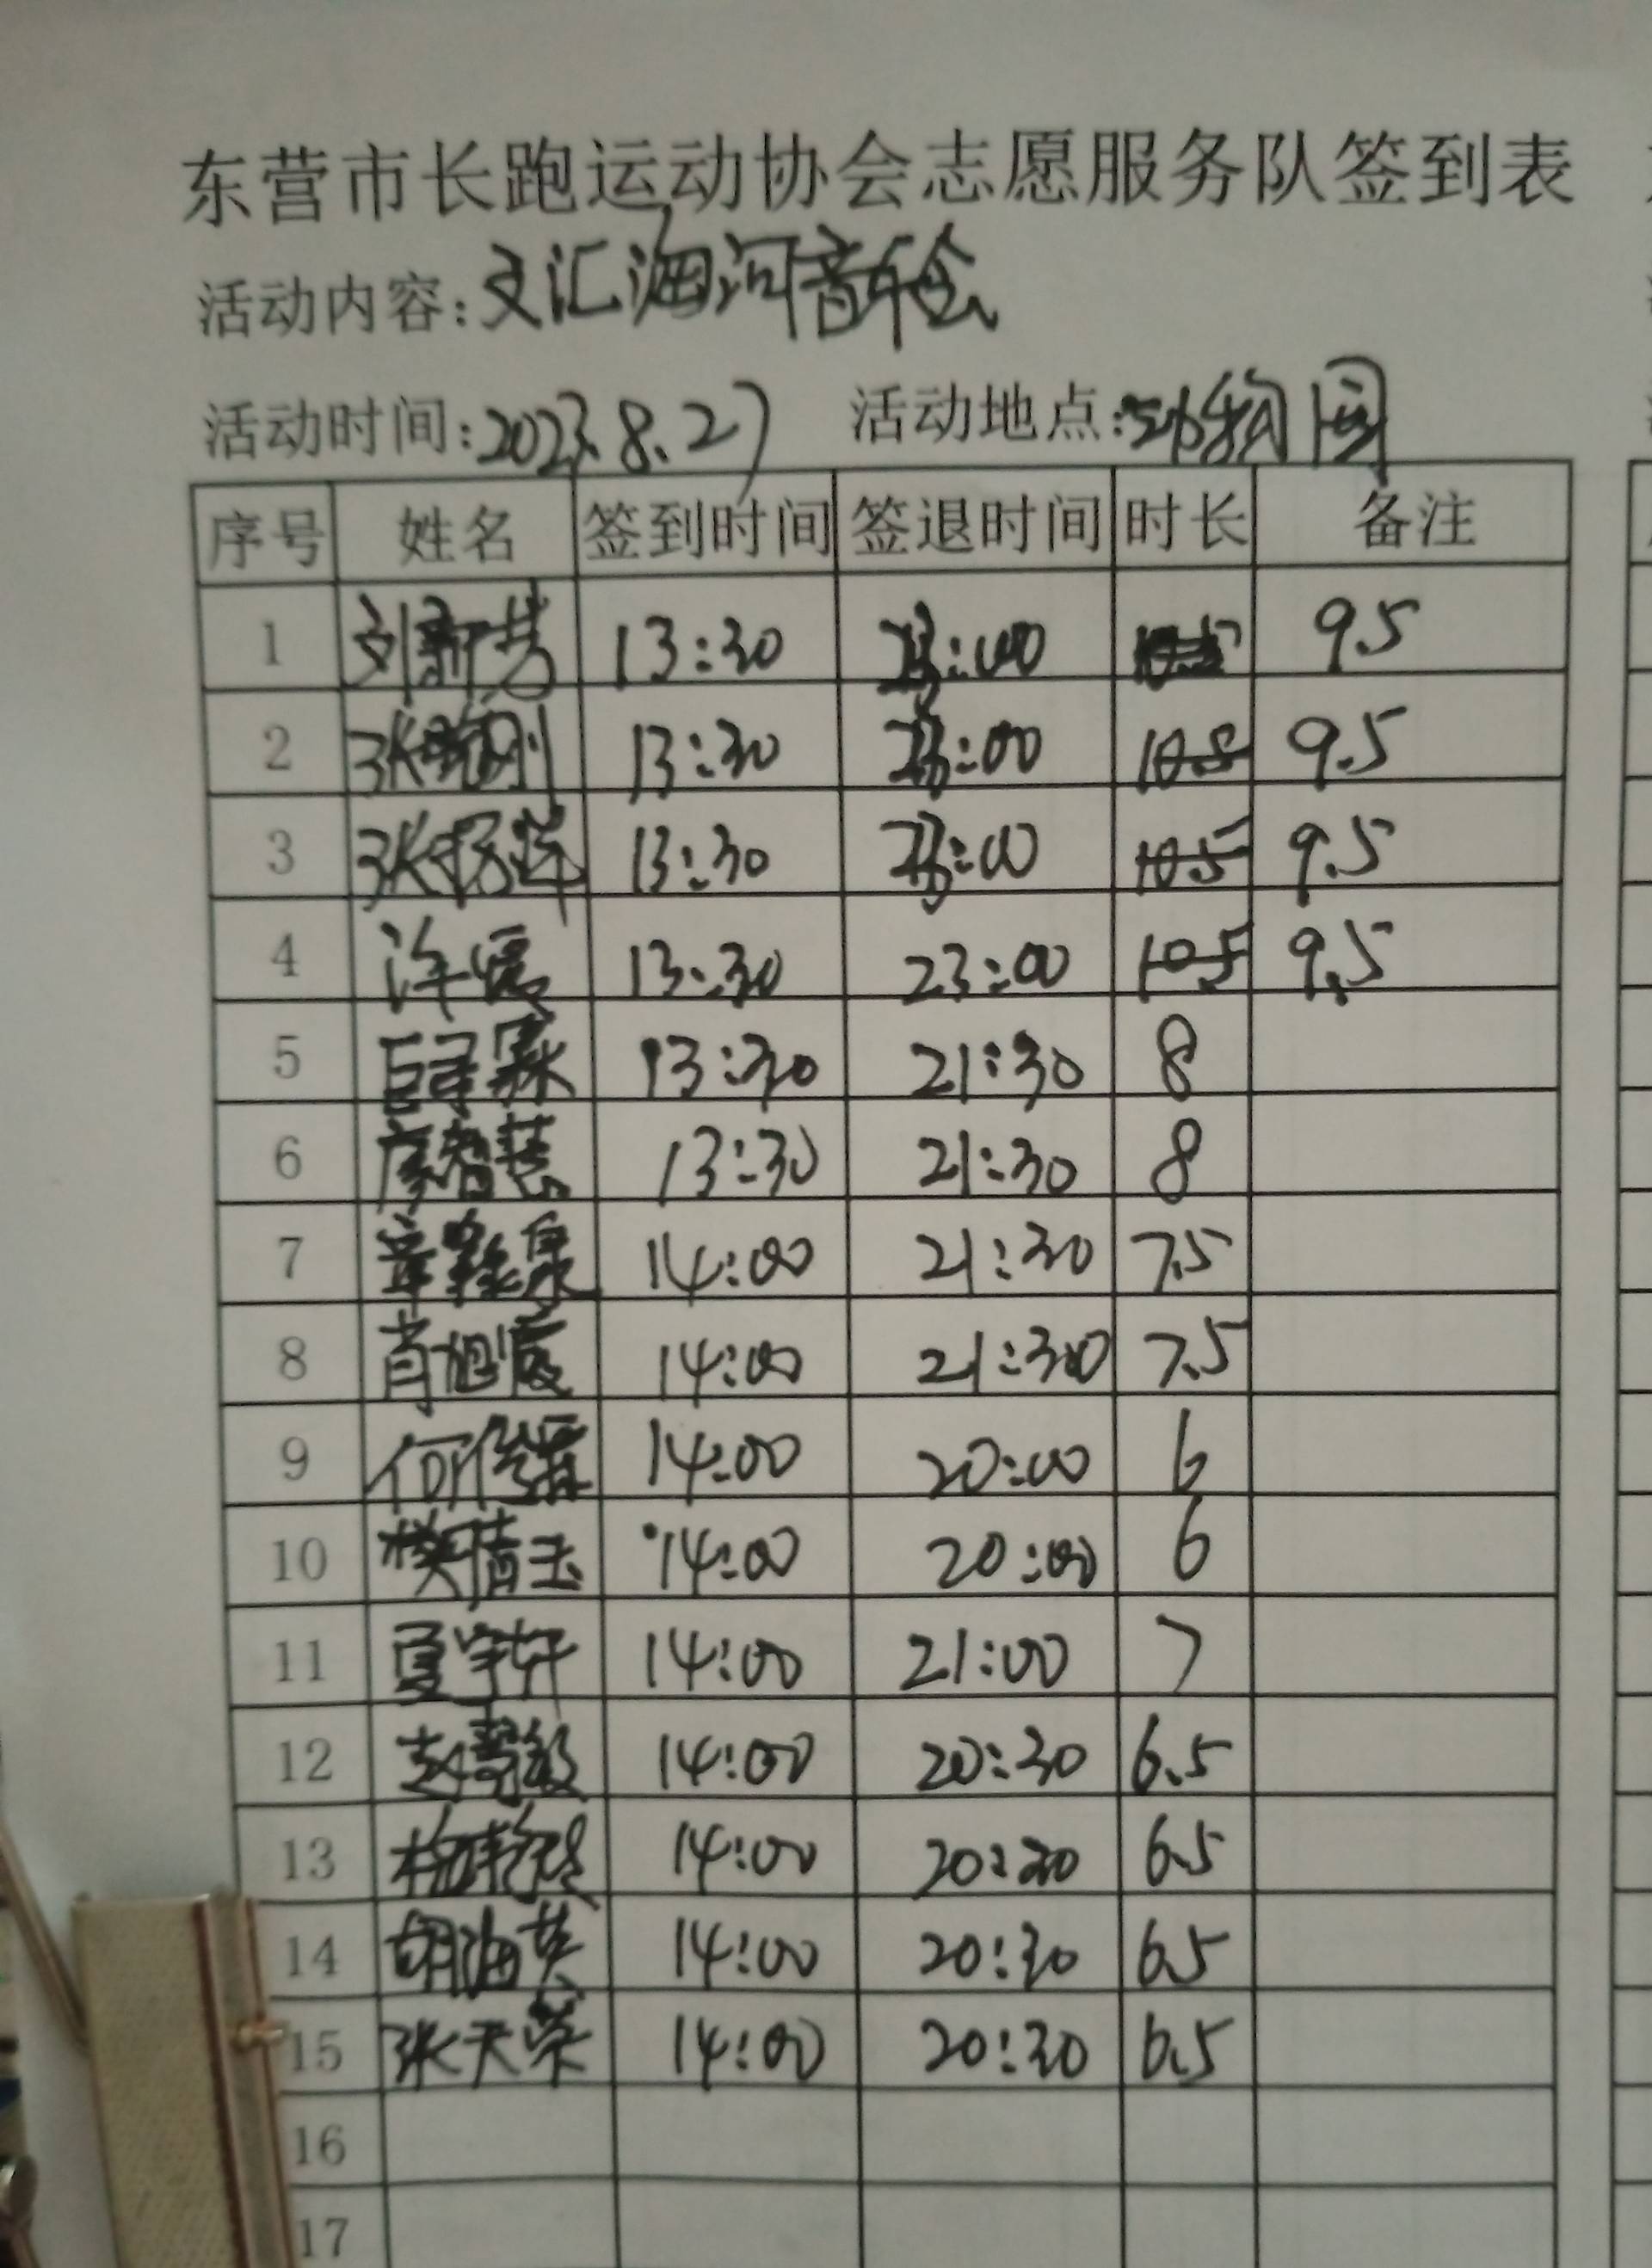 东营市长跑运动协会志愿服务队签到表
活动内容:文汇 河音乐会
活动时间:2023.8.27 活动地点:动物园
序号 姓名 签到时间 签退时间 时长 备注
1 刘新芳 13:30 23:00 9.5
2 张晓刚 13:30 23:00 10.5 9.5
3 张 13:30 23:00 10.5 9.5
4 许霞 13:30 23:00 10.5 9.5
5 13:30 21:30 8
6 智慧 13:30 21:30 8
7 章 泉 14:00 21:30 7.5
8 肖旭霞 14:00 21:30 7.5
9 何 霖 14:00 20:00 6
10 模倩玉 14:00 20:00 6
11 夏宇轩 14:00 21:00 7
12 赵 敏 14:00 20:30 6.5
13 杨 14:00 20:30 6.5
14 胡海英 14:00 20:30 6.5
15 张天荣 14:00 20:30 6.5
16
17